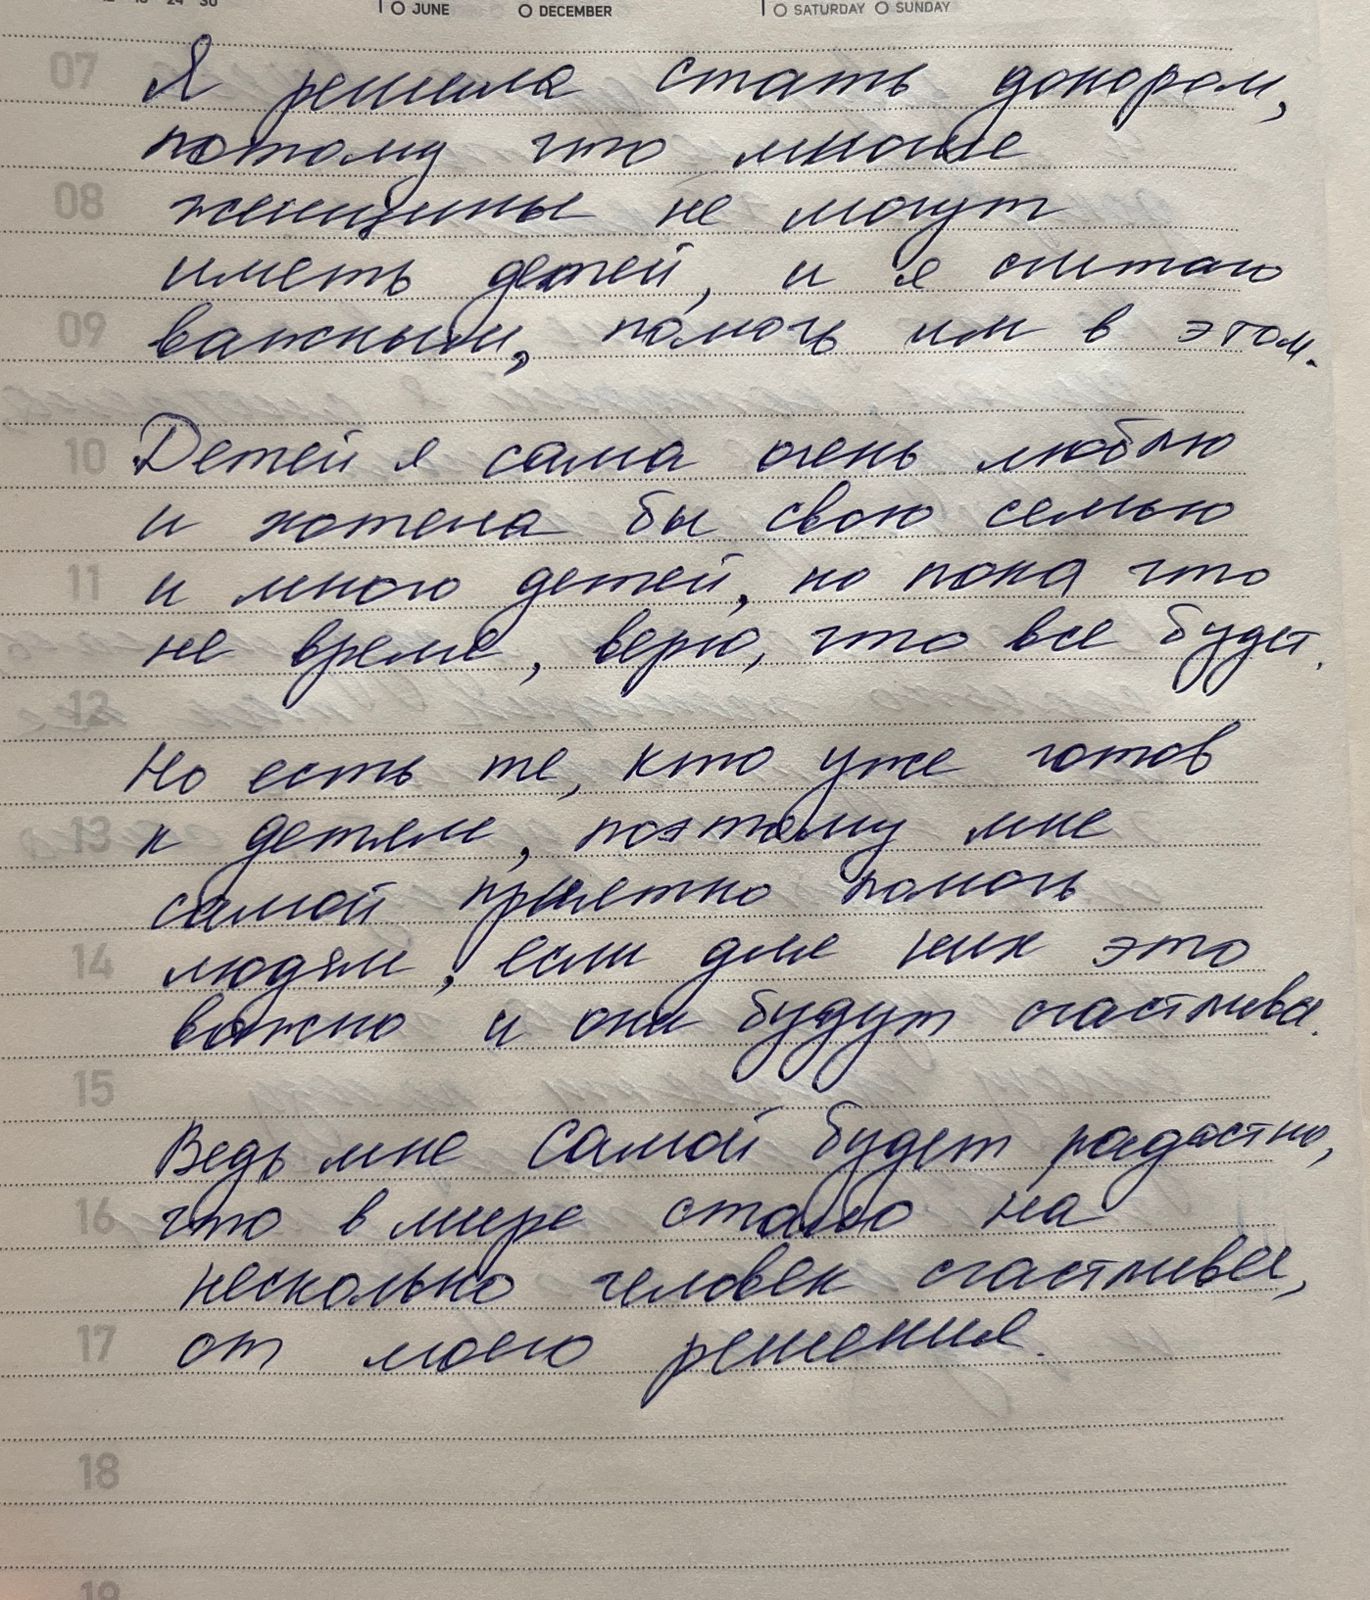 JUNE DECEMBER SATURDAY SUNDAY
07 Я решила стать донором,
потому что многие
08 женщины не могут
иметь детей, и я считаю
09 важным, помочь им в этом.
10 Детей я сама очень люблю
и хотела бы свою семью
11 и много детей, но пока что
не время, верю, что все будет.
12
Но есть те, кто уже готов
13 к детям, поэтому мне
самой приятно помочь
14 людям, если для них это
важно и они будут счастливы.
15
Ведь мне самой будет радостно,
16 что в мире стало на
несколько человек счастливее,
17 от моего решения.
18
19